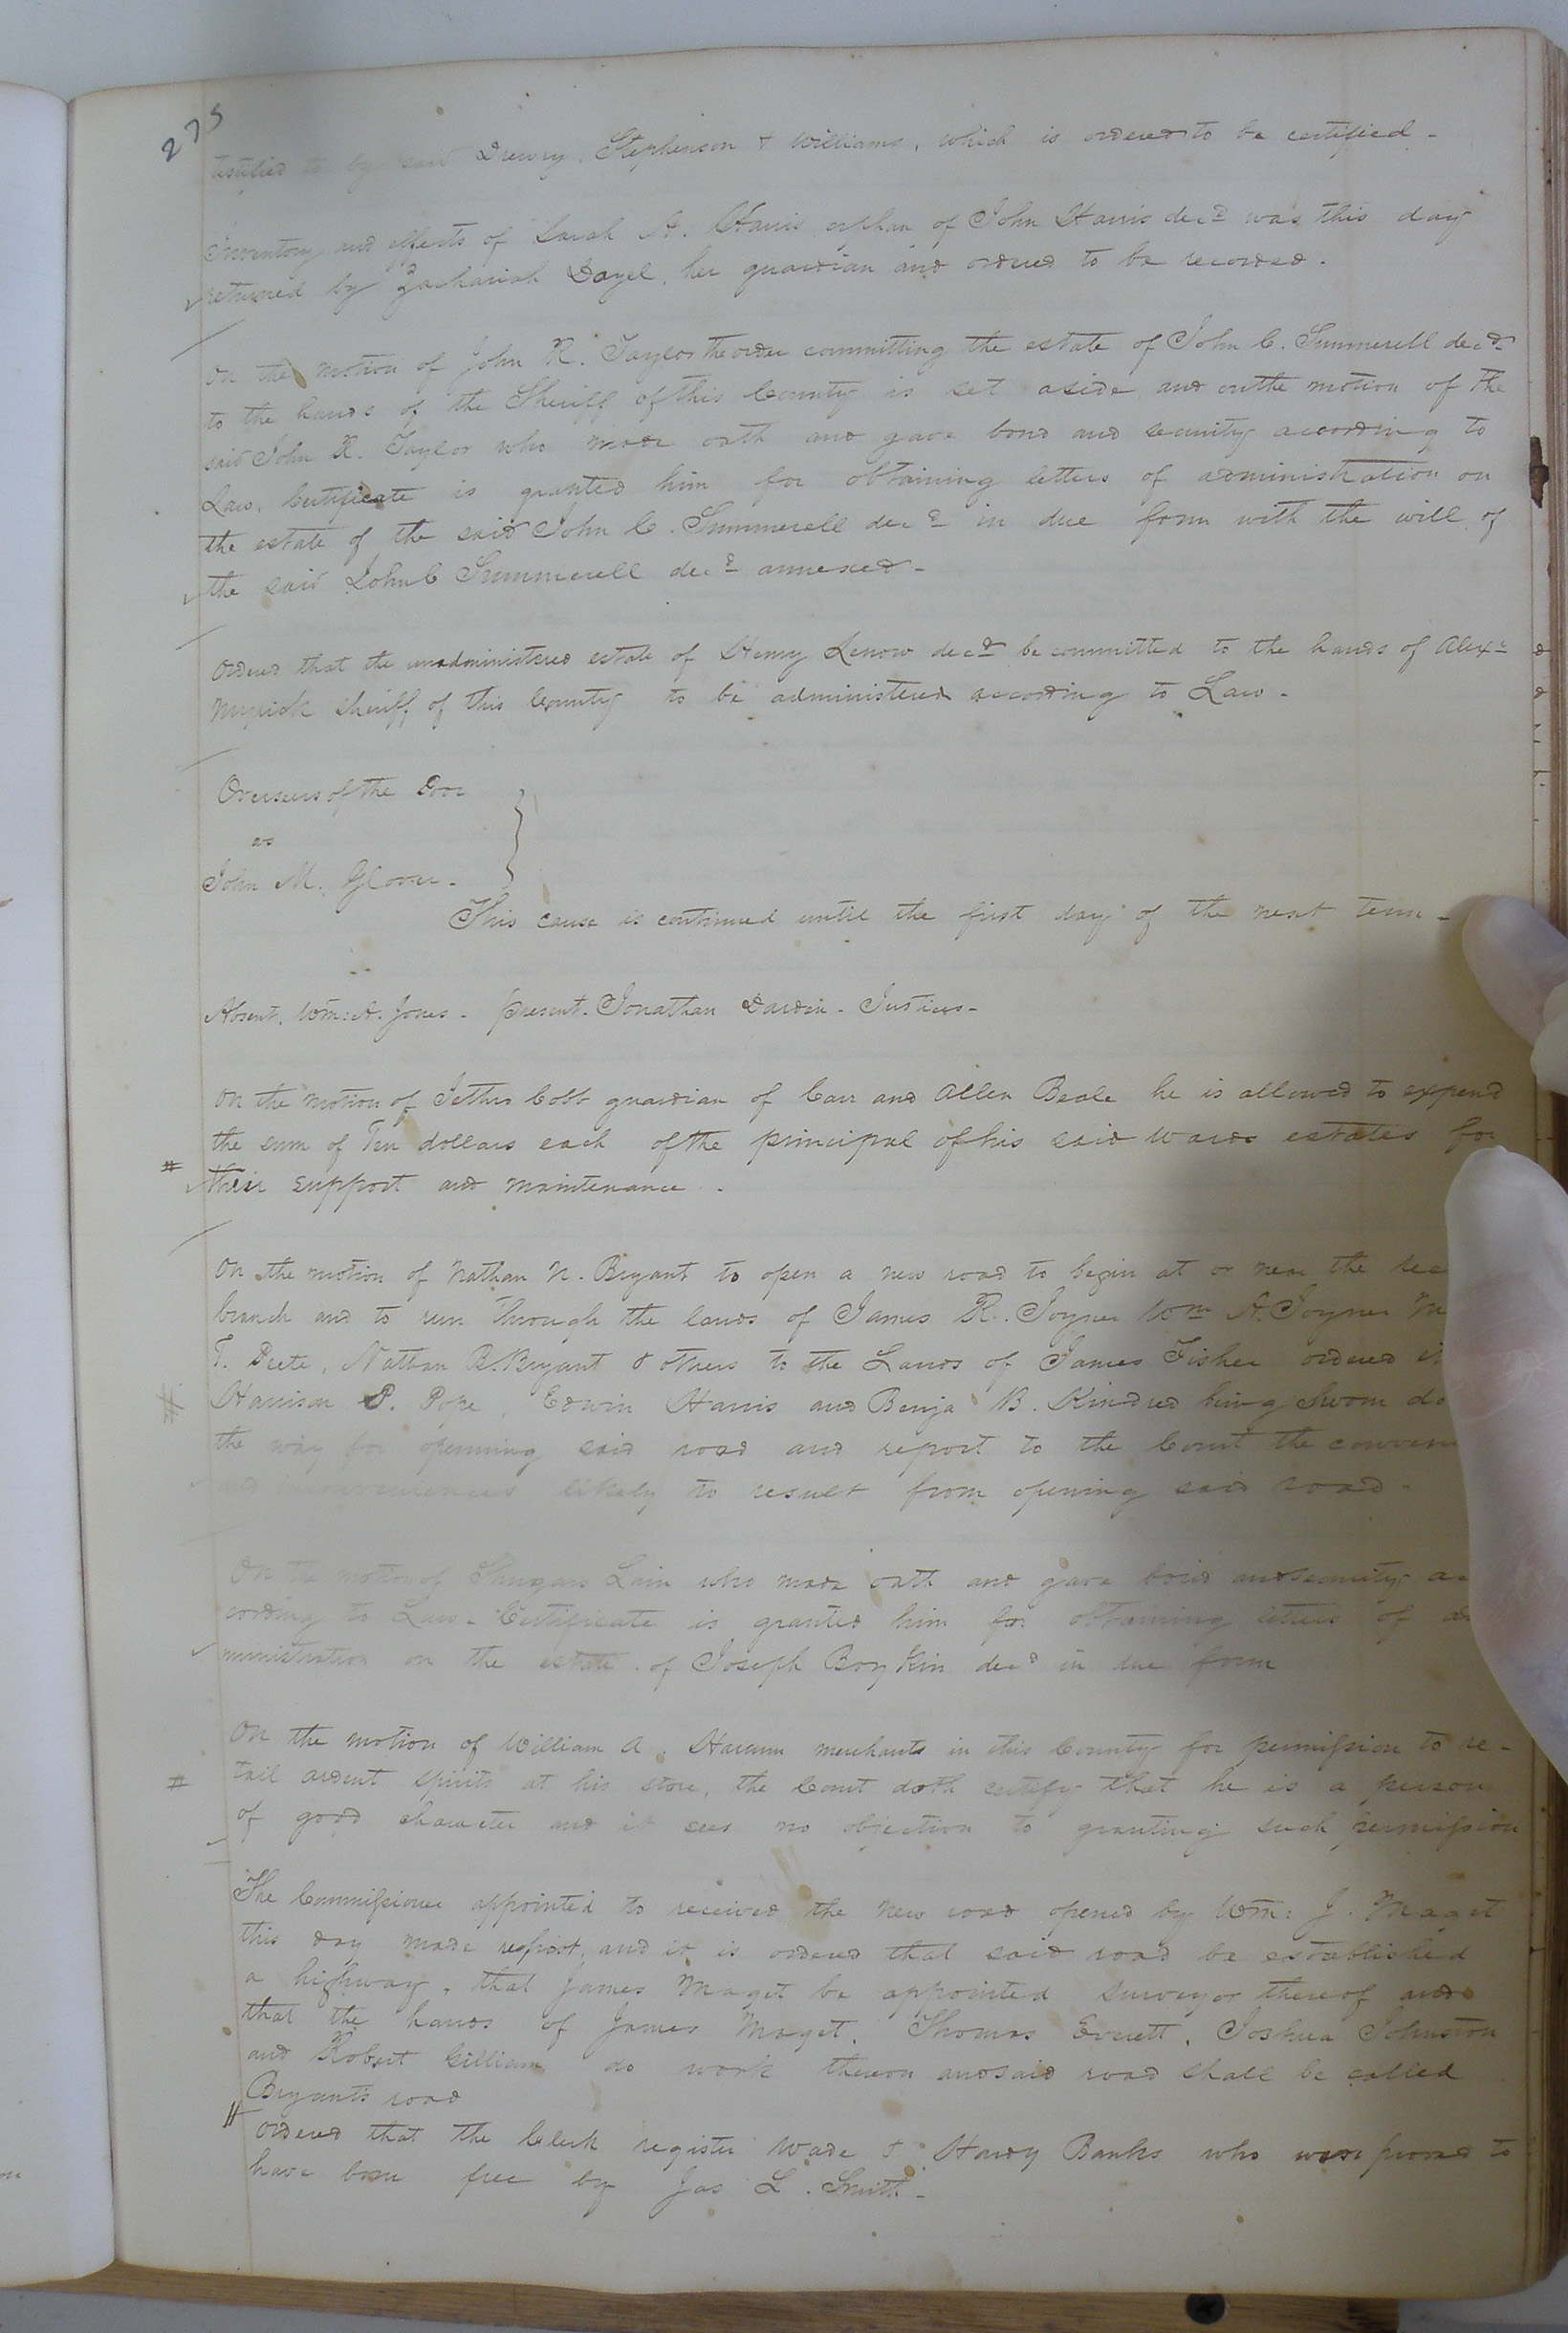 275
testified to by said Drewry, Stephenson & Williams, which is ordered to be certified -
Inventory and effects of Sarah A. Harris orphan of John Harris decd was this day
returned by Zachariah Dayel, her guardian and ordered to be recorded.
On the motion of John R. Taylor the order committing the estate of John C. Summerell decd
to the hands of the Sheriff of this County is set aside and on the motion of the
said John R. Taylor who made oath and gave bond and security according to
Law, Certificate is granted him for obtaining letters of administration on
the estate of the said John C. Summerell decd in due form with the will of
the said John C Summerell decd annexed -
Ordered that the unadministered estate of Henry Lenow decd be committed to the hands of Alexr
Myrick Sheriff of this County to be administered according to Law -
Overseers of the Poor
vs
John M. Glover -
This cause is continued until the first day of the next term -
Absent. Wm: A. Jones - present. Jonathan Darden - Justices -
On the motion of Jethro Cobb guardian of Carr and Allen Beale he is allowed to expend
the sum of Ten dollars each of the principal of his said wards estates for
# their support and maintenance.
On the motion of Nathan N. Bryant to open a new road to begin at or near the
branch and to run through the lands of James R. Joyner Wm A. Joyner
T. Peete, Nathan B. Bryant & others to the Lands of James Fisher ordered
# Harrison P. Pope, Edwin Harris and Benja B. Kindred being sworn do
the way for openning said road and report to the Court the
and inconveniences likely to result from opening said road -
On the motion of Lain who made oath and gave bond and security ac
cording to Law - Certificate is granted him for obtaining letters of ad
ministration on the estate of Joseph Boykin decd in due form
On the motion of William A. merchants in this County for permission to re-
# tail ardent spirits at his store, the Court doth certify that he is a person
of good character and it sees no objection to granting such permission
The Commissioner appointed to received the new road opened by Wm: J. Maget
this day made report, and it is ordered that said road be established
a highway, that James Maget be appointed surveyor thereof and
that the hands of James Maget, Thomas Everett, Joshua Johnston
and Robert Gilliam do work thereon and said road shall be called
Bryants road
# Ordered that the Clerk register Wade & Hardy Banks who were proved to
have born free by Jas L. Smith -